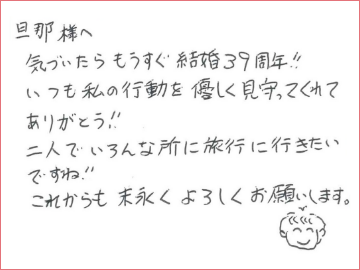 旦那様へ
気づいたらもうすぐ結婚39周年!!
いつも私の行動を優しく見守ってくれて
ありがとう!!
二人でいろんな所に旅行に行きたい
ですね!!
これからも末永くよろしくお願いします。